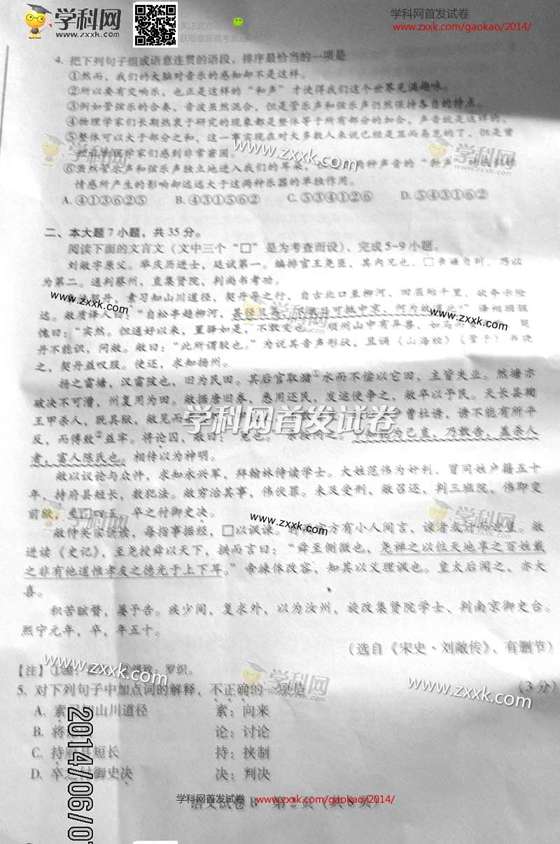 学科网
www.zxxk.com
学科网首发试卷
www.zxxk.com/gaokao/2014/
4. 把下列句子组成语意连贯的语段，排序最恰当的一项是
①然而，我们的大脑对音乐的感知却不是这样。
②所以要有交响乐，也正是这样的“和声”才使得我们这个世界充满趣味。
③例如管弦乐的合奏，音波虽然混合，但是管乐声和弦乐声仍然保持各自的特点。
④物理学家们长期热衷于研究的现象都是整体等于所有部分的加合，声音波是这样的。
⑤整体可以大于部分之和，这一事实现在对大多数人来说已经是显而易见的了，但是曾
把 物理学家们感到非常窘困。
⑥虽然管乐声和弦乐声独立地进入我们的耳朵，
情感所产生的影响却远远大于这两种乐器的单独作用。
A. ④①③⑥②⑤ B. ④①⑤⑥②③ C. ⑤③④①②⑥ D. ⑤④③①⑥②
www.zxxk.com
学科网
二、本大题 7 小题，共 35 分。
阅读下面的文言文（文中三个“□”是为考查而设），完成5~9小题。
刘敞字原父。举庆历进士，廷试第一。编排官王尧臣，其内兄也，
为第二。通判蔡州，直集贤院，判尚书考功。
素习知山川道径，契丹导之行，自古北口至柳河，回屈殆千里，欲夸示险
远。敞质译人曰：“自松亭趋柳河，甚径且易，不数日可抵中京，何为故道此？”译相顾骇
愧曰：“实然。但通好以来，置驿如是，不敢变也。”顺州山中有异兽，如马
丹不能识，问敞。敞曰：“此所谓駮也。”为说其音声形状，且诵《山海经》《管子》书晓
之，契丹益叹服。使还，求知扬州。
扬之雷塘，汉雷陂也，旧为民田。其后官取潴①水而不偿以它田，主皆失业。然塘亦
破决不可漕，州复用为田。敞据唐旧券，悉用还民，发运使争之，敞卒以予民。天长县鞫
王甲杀人，既具狱，敞见而
反，而傅致②益牢。将论囚，敞曰：
者，富人陈氏也。相传以为神明。
敞以识论与众忤，求知永兴军，拜翰林侍读学士。大姓范伟为奸利，冒同姓户籍五十
年，持府县短长，数犯法。敞穷治其事，伟伏罪。未及受刑，敞召还，判三班院，伟即变
前狱，至□四五，卒之付御史决。
敞侍英宗讲读，每指事据经，□以讽谏。
进读《史记》，至尧授舜以天下，拱而言曰：“舜至侧微也，尧禅之以位，天地享之，百姓戴
之，非有他道，惟孝友之德，光于上下耳。”帝竦体改容，知其以义理讽也。皇太后闻之，亦大
喜。
积苦眩瞀，屡予告。疾少间，复求外，以为汝州，旋改集贤院学士、判南京御史台。
熙宁元年，卒，年五十。
（选自《宋史·刘敞传》，有删节）
学科网首发试卷
www.zxxk.com
www.zxxk.com
www.zxxk.com
【注】
罗织。
5. 对下列句子中加点词的解释，不正确的一项是
（3 分）
A. 素习知山川道径 素：向来
B. 将 论：讨论
C. 持府县短长 持：挟制
D. 卒之付御史决 决：判决
www.zxxk.com
学科网
www.zxxk.com
2014/06/0
学科网首发试卷
www.zxxk.com/gaokao/2014/
语文试卷B